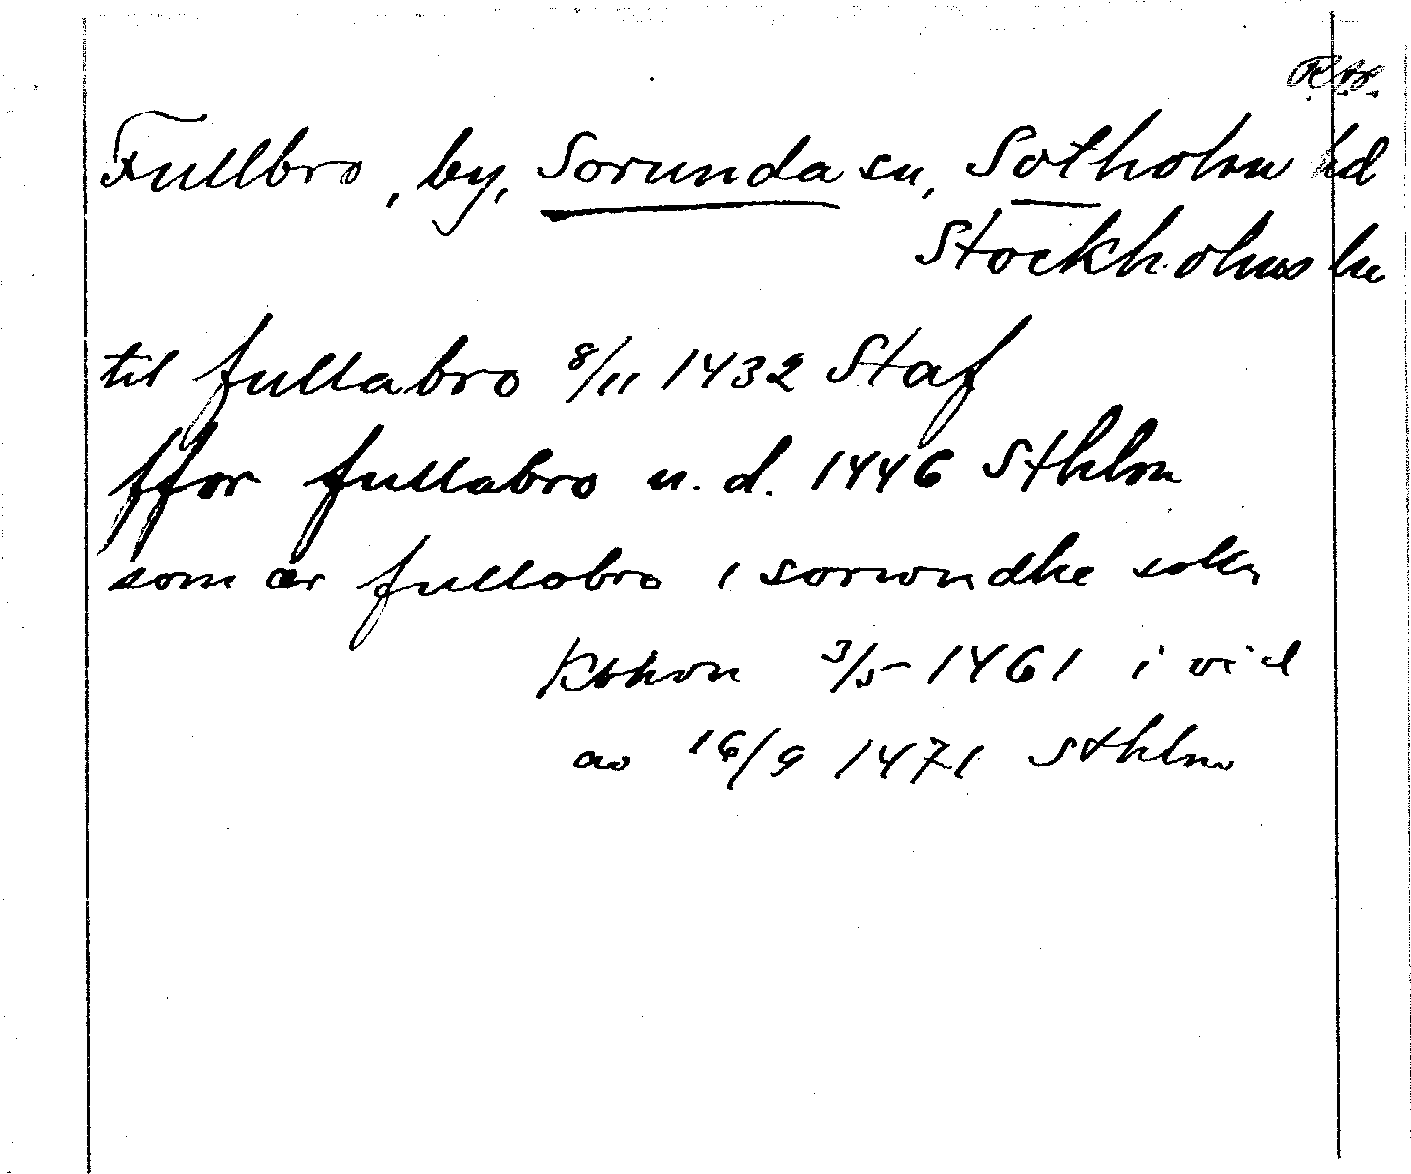 Fullbro, by, Sorunda sn, Sotholms hd
Stockholms län
til fullabro 8/11 1432 Staf
ffor fullabro u. d. 1446 Sthlm
som ær fullobro i sorwndhe sokn
3/5 1461 i vid
av 16/9 1471 Sthlm